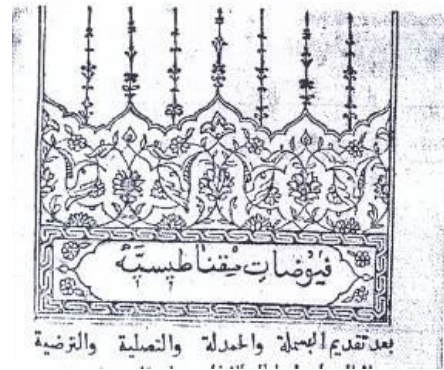 فيوضات مقناطيسيه
بعد تقديم البسملة والحمدلة والتصلية والترضية